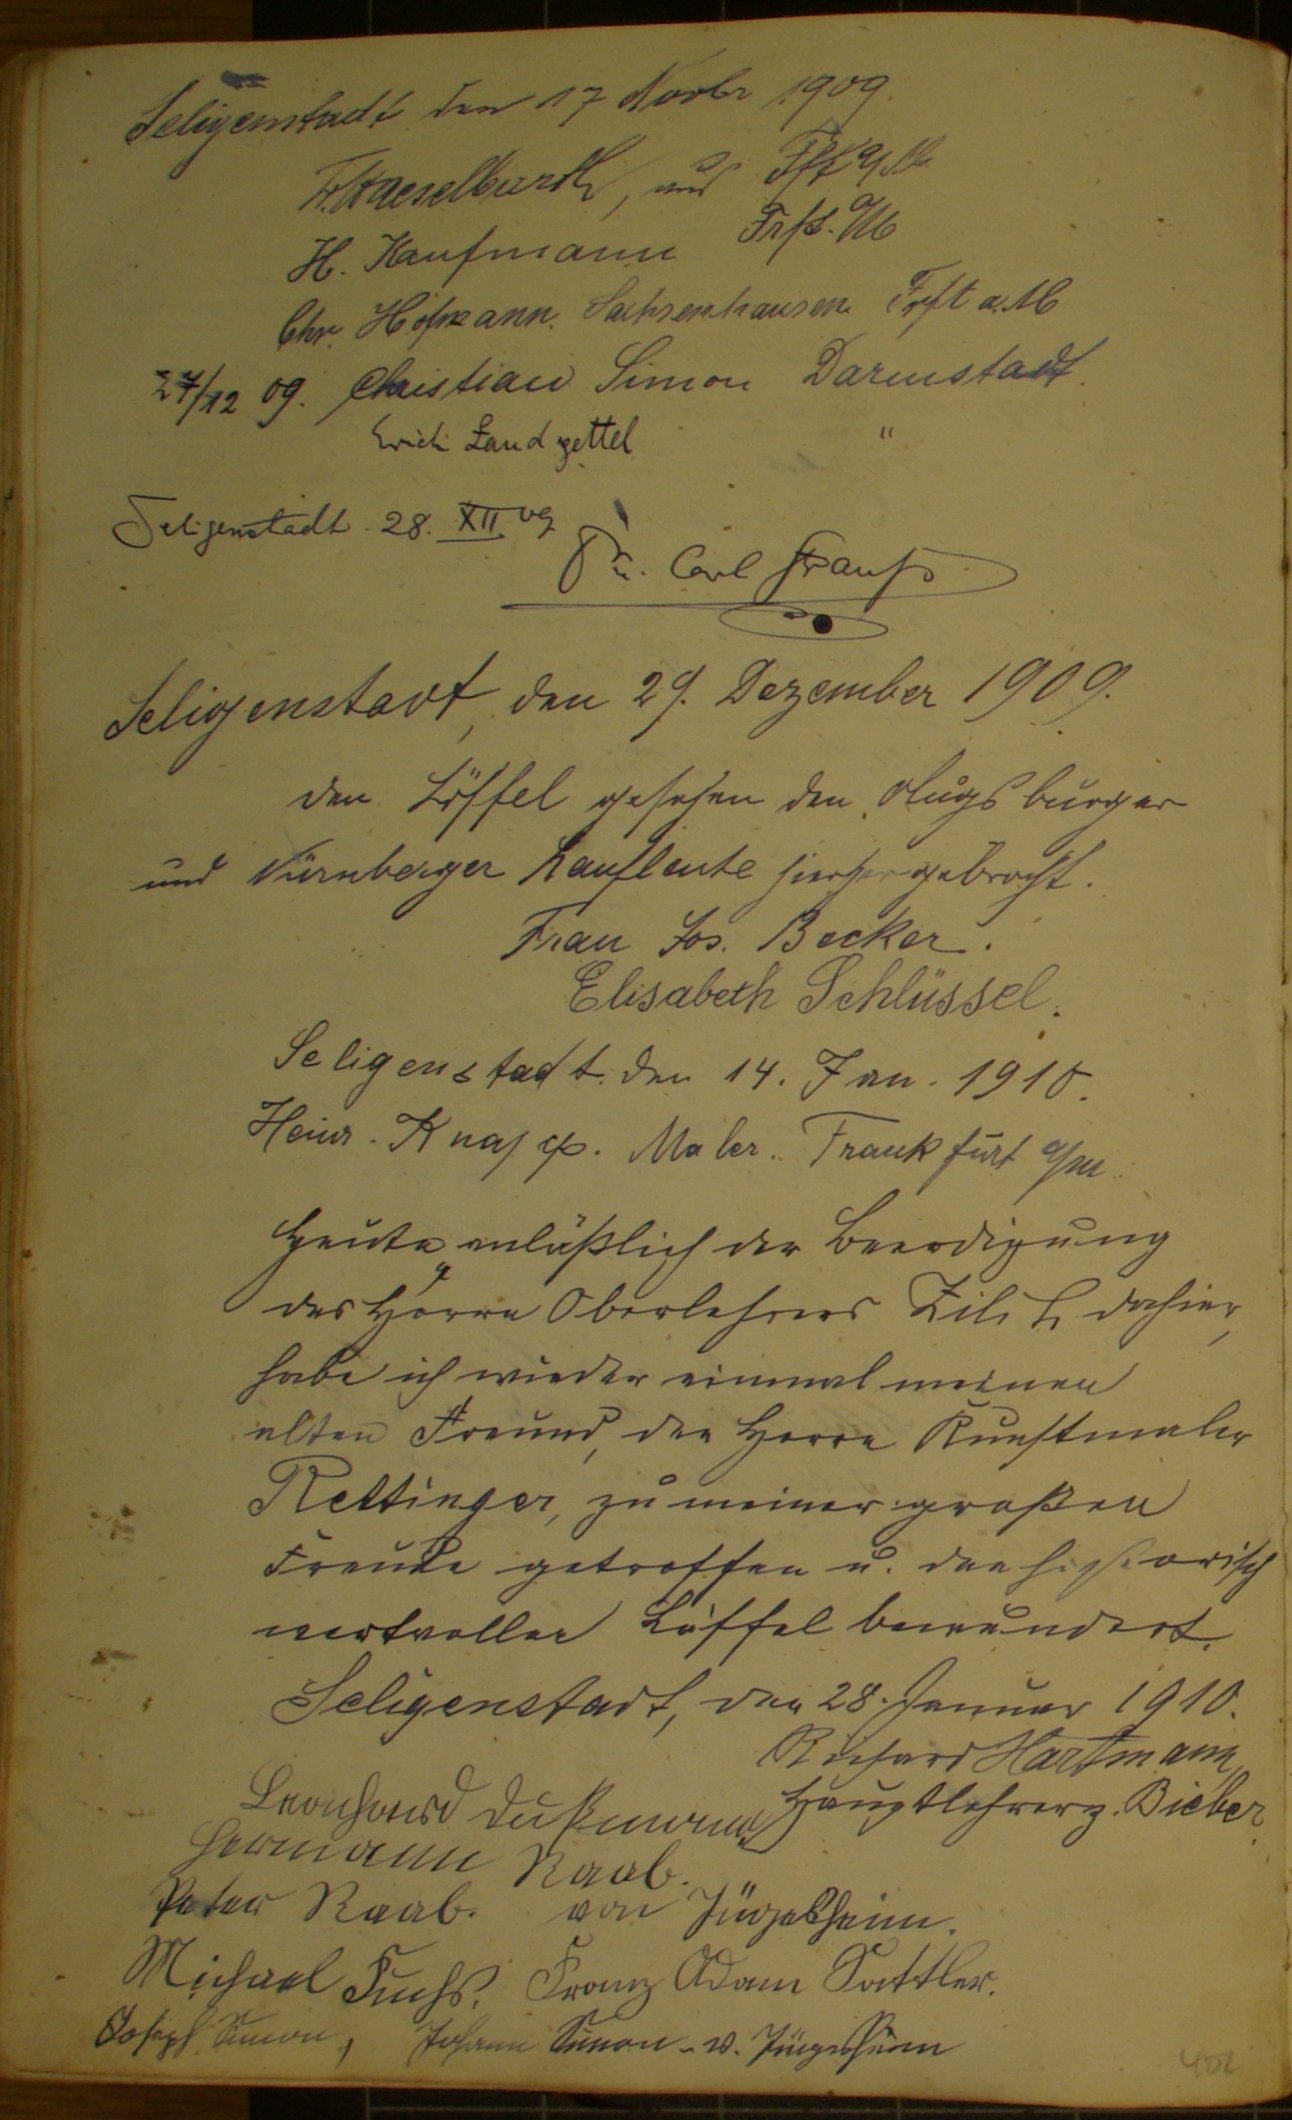 Seligenstadt den 17 Novbr 1909.
Haeselbarth, aus Fft a/M
H. Kaufmann Frft. a/M
Chr. Hofmann. Sachsenhausen Frft a. M
27/12 09. Christian Simon Darmstadt.
Erich Landzettel "
Seligenstadt. 28. XII 09
Carl Strauß
Seligenstadt, den 29. Dezember 1909.
Den Löffel gesehen den Augsburger
und Nürnberger Kaufleute hierher gebracht.
Frau Jos. Becker.
Elisabeth Schlüssel.
Seligenstadt. den 14. Jan. 1910.
Heinr. Knapp. Maler. Frankfurt a/M.
Heute anläßlich der Beerdigung
des Herrn Oberlehrers dahier,
habe ich wieder einmal meinen
alten Freund, den Herrn Kunstmaler
Rettinger, zu meiner großen
Freude getroffen u. den historisch
wertvollen Löffel bewundert.
Seligenstadt, den 28. Januar 1910.
Richard Hartmann
Hauptlehrer z. Bieber.
Leonhard Dußmann
Hermann Raab.
Peter Raab. von Jügesheim.
Michael Fuchs. Franz Adam Sattler.
Joseph Simon, Johann Simon. v. Jügesheim
402